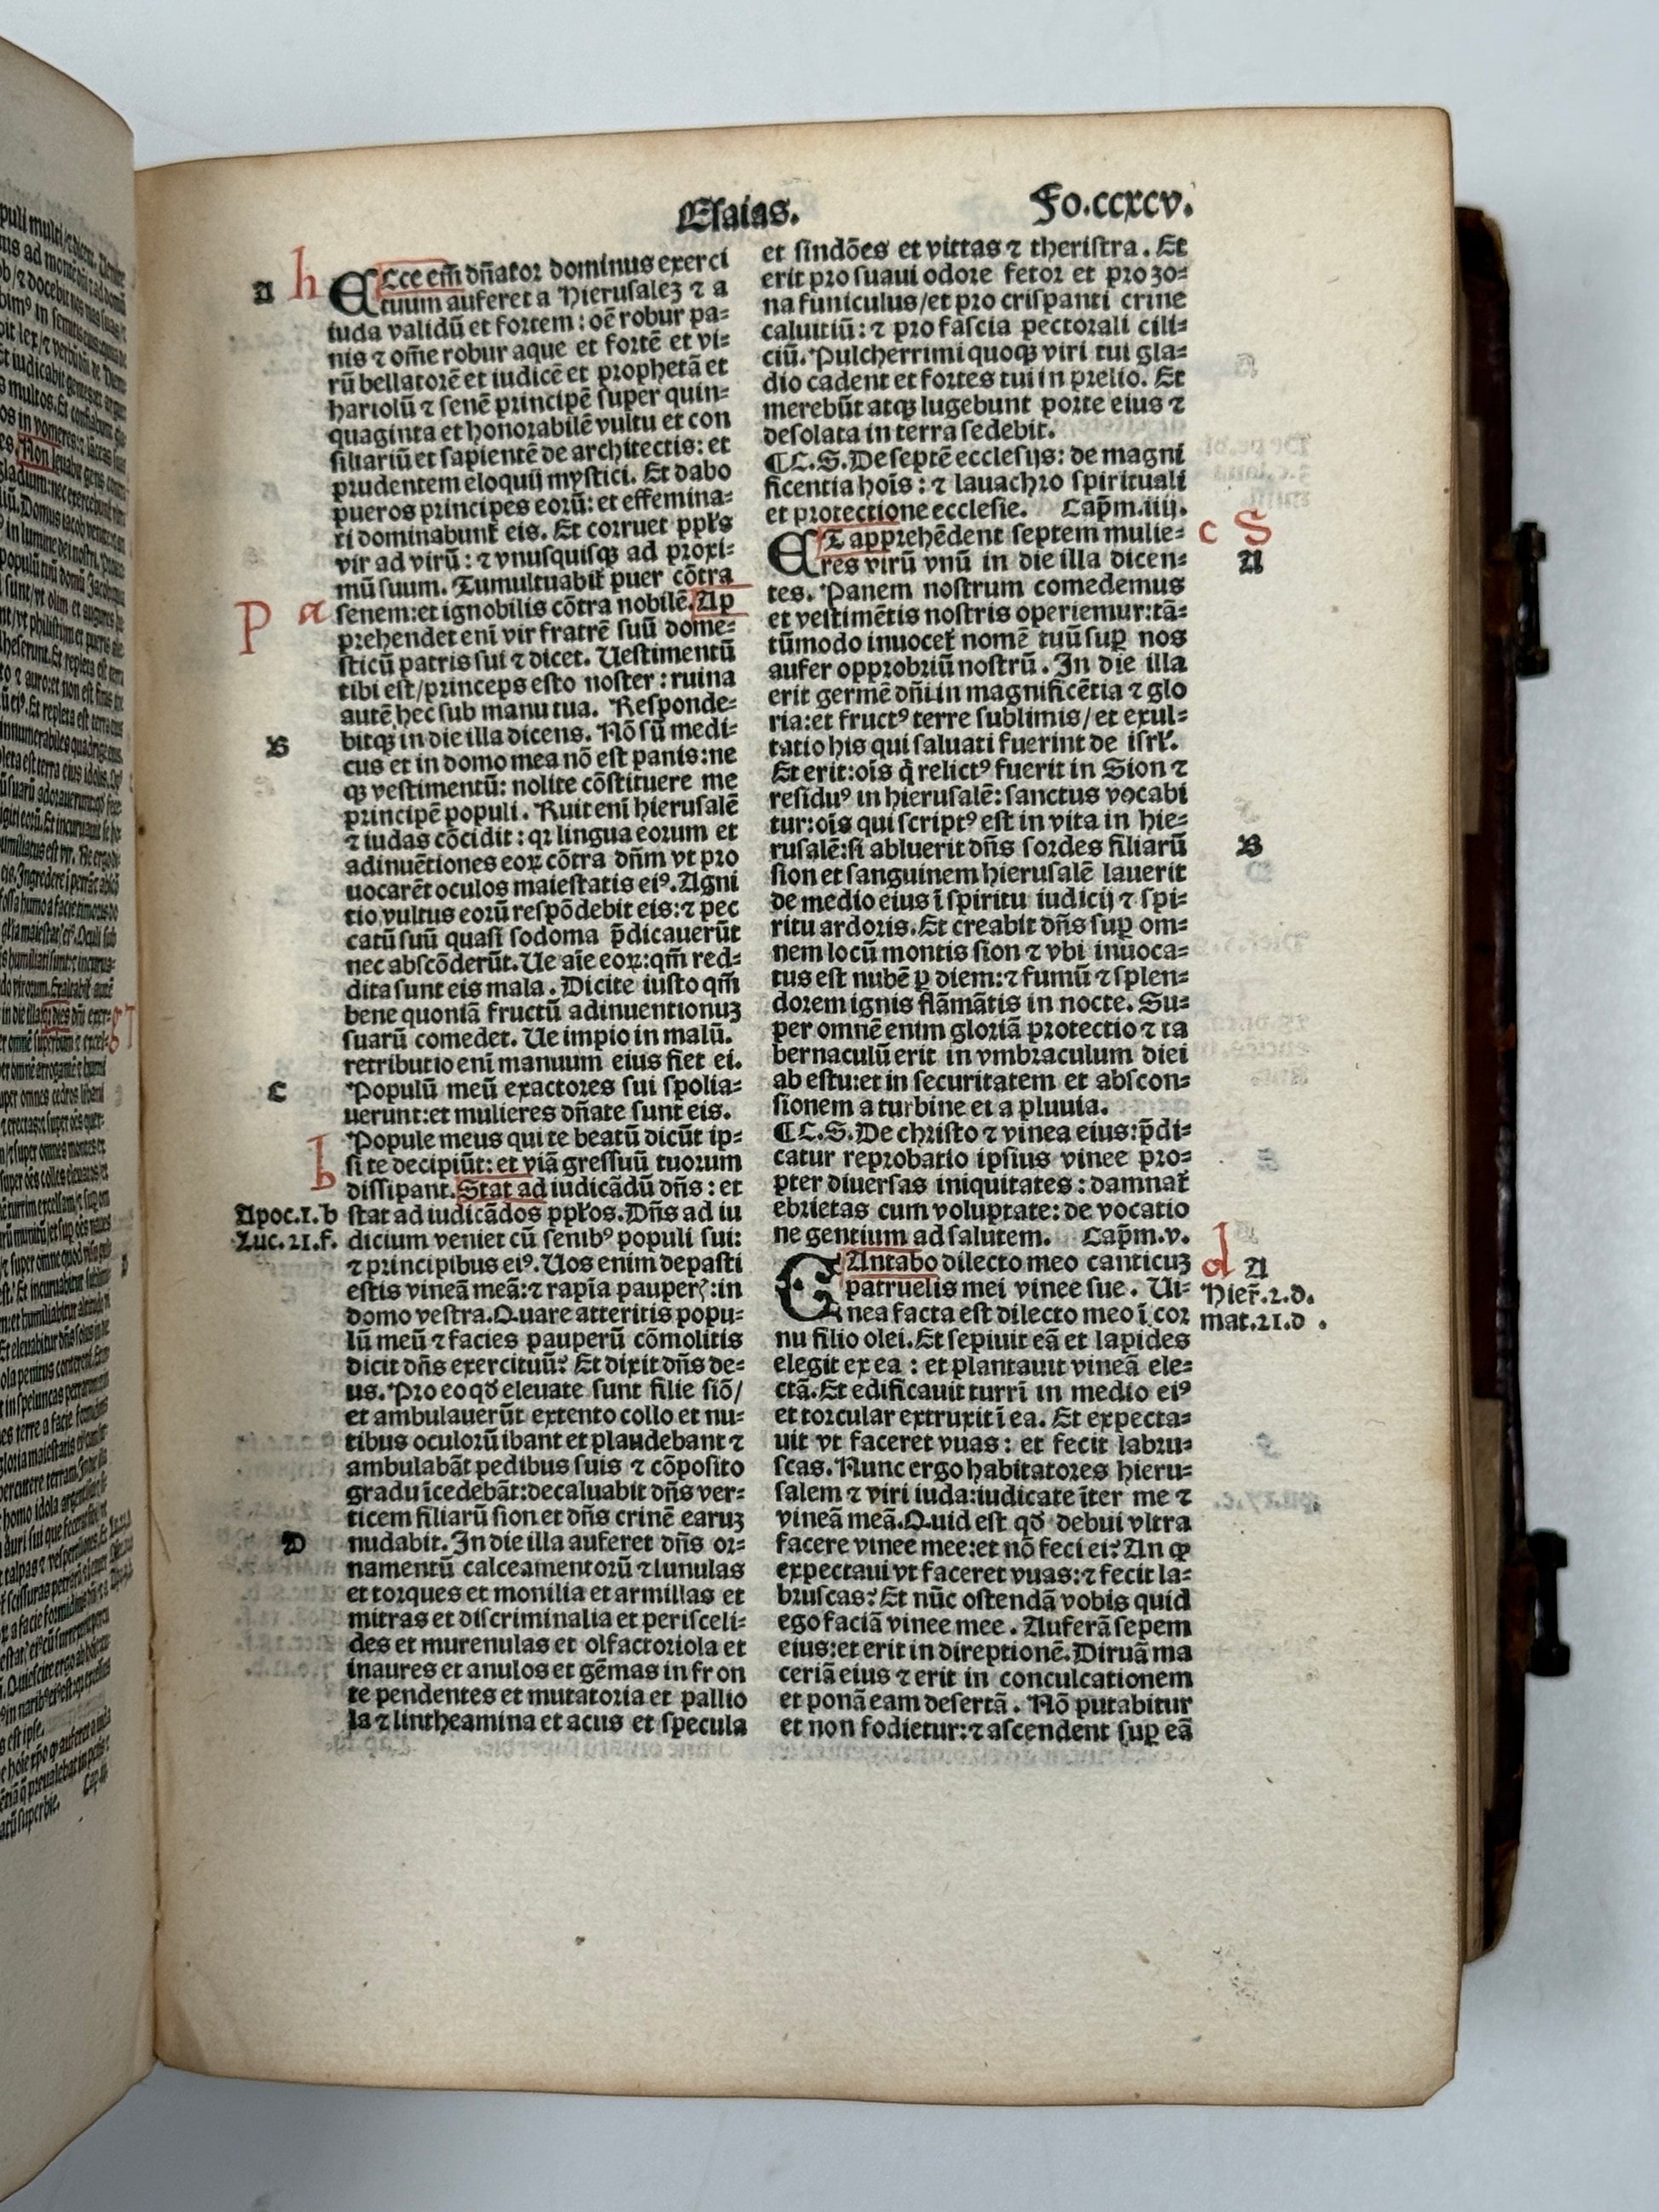 Esaias.
Fo.ccxcv.
A h
ECce em̄ dñator dominus exerci
tuum auferet a Hierusalez ⁊ a
iuda validū et fortem: oē robur pa=
nis ⁊ om̄e robur aque et fortē et vi=
rū bellatorē et iudicē et prophetā et
hariolū ⁊ senē principē super quin=
quaginta et honorabilē vultu et con
siliariū et sapientē de architectis: et
prudentem eloquij mystici. Et dabo
pueros principes eorū: et effemina=
ti dominabunt̄ eis. Et corruet ppl̄s
vir ad virū: ⁊ vnusquisqꝫ ad proxi=
mū suum. Tumultuabit̄ puer cōtra
P a
senem: et ignobilis cōtra nobilē. Ap
prehendet eni vir fratrē suū dome=
sticū patris sui ⁊ dicet. Uestimentū
tibi est/princeps esto noster: ruina
autē hec sub manu tua. Responde=
B
bitqꝫ in die illa dicens. Nō sū medi=
cus et in domo mea nō est panis: ne
qꝫ vestimentū: nolite cōstituere me
principē populi. Ruit eni hierusalē
⁊ iudas cōcidit: qꝛ lingua eorum et
adinuētiones eoꝝ cōtra dñm vt pro
uocarēt oculos maiestatis eiꝰ. Agni
tio vultus eorū respōdebit eis: ⁊ pec
catū suū quasi sodoma p̄dicauerūt
nec abscōderūt. Ue aīe eoꝝ: qm̄ red=
dita sunt eis mala. Dicite iusto qm̄
bene quoniā fructū adinuentionuꝫ
suarū comedet. Ue impio in malū.
retributio eni manuum eius fiet ei.
C
Populū meū exactores sui spolia=
uerunt: et mulieres dñate sunt eis.
Popule meus qui te beatū dicūt ip=
b
si te decipiūt: et viā gressuū tuorum
dissipant. Stat ad iudicādū dñs: et
Apoc.1.b
stat ad iudicādos ppl̄os. Dñs ad iu
Luc.21.f.
dicium veniet cū senibꝰ populi sui:
⁊ principibus eiꝰ. Uos enim depasti
estis vineā meā: ⁊ rapīa pauperꝭ: in
domo vestra. Quare atteritis popu=
lū meū ⁊ facies pauperū cōmolitis
dicit dñs exercituū? Et dixit dñs de=
us. Pro eo qď eleuate sunt filie siō/
et ambulauerūt extento collo et nu=
tibus oculorū ibant et plaudebant ⁊
ambulabāt pedibus suis ⁊ cōposito
gradu īcedebāt: decaluabit dñs ver=
ticem filiarū sion et dñs crinē earuꝫ
D
nudabit. In die illa auferet dñs or=
namentū calceamentorū ⁊ lunulas
et torques et monilia et armillas et
mitras et discriminalia et perisceli=
des et murenulas et olfactoriola et
inaures et anulos et gēmas in fron
te pendentes et mutatoria et pallio
la ⁊ lintheamina et acus et specula
et sindōes et vittas ⁊ theristra. Et
erit pro suaui odore fetor et pro zo=
na funiculus/et pro crispanti crine
caluitiū: ⁊ pro fascia pectorali cili=
ciū. Pulcherrimi quoqꝫ viri tui gla=
dio cadent et fortes tui in prelio. Et
merebūt atqꝫ lugebunt porte eius ⁊
desolata in terra sedebit.
¶ L.S. De septē ecclesijs: de magni
ficentia hoīs: ⁊ lauachro spirituali
et protectione ecclesie. Capm̄.iiij.
ET apprehēdent septem mulie=
c S
res virū vnū in die illa dicen=
A
tes. Panem nostrum comedemus
et vestimētis nostris operiemur: tā=
tūmodo inuocet̄ nomē tuū suꝑ nos
aufer opprobriū nostrū. In die illa
erit germē dñi in magnificētia ⁊ glo
ria: et fructꝰ terre sublimis/et exul=
tatio his qui saluati fuerint de isrl̄.
Et erit: oīs q̇ relictꝰ fuerit in Sion ⁊
residuꝰ in hierusalē: sanctus vocabi
tur: oīs qui scriptꝰ est in vita in hie=
rusalē: si abluerit dñs sordes filiarū
B
sion et sanguinem hierusalē lauerit
de medio eius ī spiritu iudicij ⁊ spi=
ritu ardoris. Et creabit dñs suꝑ om=
nem locū montis sion ⁊ vbi inuoca=
tus est nubē ꝑ diem: ⁊ fumū ⁊ splen=
dorem ignis flāmātis in nocte. Su=
per omnē enim gloriā protectio ⁊ ta
bernaculū erit in vmbraculum diei
ab estu: et in securitatem et abscon=
sionem a turbine et a pluuia.
¶ L.S. De christo ⁊ vinea eius: p̄di=
catur reprobatio ipsius vinee pro=
pter diuersas iniquitates: damnat̄
ebrietas cum voluptate: de vocatio
ne gentium ad salutem. Capm̄.v.
CAntabo dilecto meo canticuꝫ
d A
patruelis mei vinee sue. Ui=
Hier̄.2.d.
nea facta est dilecto meo ī cor
mat.21.d.
nu filio olei. Et sepiuit eā et lapides
elegit ex ea: et plantauit vineā ele=
ctā. Et edificauit turri in medio eiꝰ
et torcular extruxit ī ea. Et expecta=
uit vt faceret vuas: et fecit labru=
scas. Nunc ergo habitatores hieru=
salem ⁊ viri iuda: iudicate īter me ⁊
vineā meā. Quid est qď debui vltra
facere vinee mee: et nō feci ei? An ꝙ
expectaui vt faceret vuas: ⁊ fecit la=
bruscas? Et nūc ostendā vobis quid
ego faciā vinee mee. Auferā sepem
eius: et erit in direptionē. Diruā ma
ceriā eius ⁊ erit in conculcationem
et ponā eam desertā. Nō putabitur
et non fodietur: ⁊ ascendent suꝑ eā